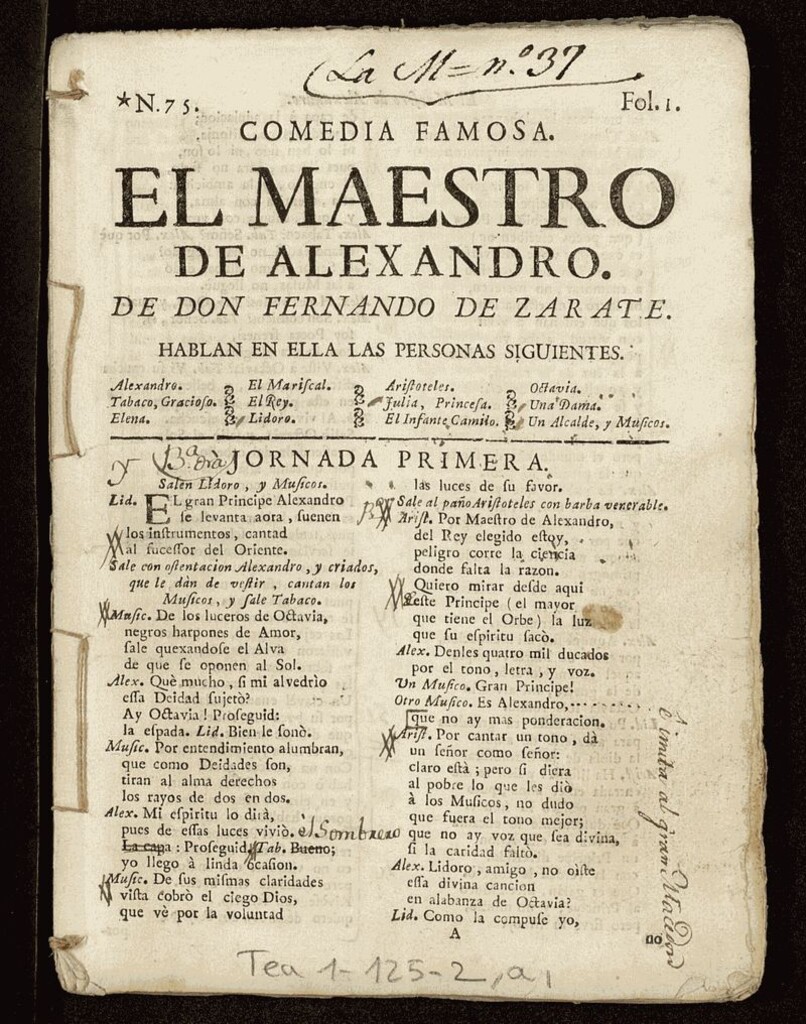 La M= nº 37
*N.75. Fol. 1.
COMEDIA FAMOSA.
EL MAESTRO
DE ALEXANDRO.
DE DON FERNANDO DE ZARATE.
HABLAN EN ELLA LAS PERSONAS SIGUIENTES.
Alexandro. El Mariſcal. Ariſtoteles. Octavia.
Tabaco, Gracioſo. El Rey. Julia, Princeſa. Una Dama.
Elena. Lidoro. El Infante Camilo. Un Alcalde, y Muſicos.
JORNADA PRIMERA.
Salen Lidoro, y Muſicos.
Lid. EL gran Principe Alexandro
ſe levanta aora, ſuenen
los inſtrumentos, cantad
al ſuceſſor del Oriente.
Sale con oſtentacion Alexandro, y criados,
que le dàn de veſtir, cantan los
Muſicos, y ſale Tabaco.
Muſic. De los luceros de Octavia,
negros harpones de Amor,
ſale quexandoſe el Alva
de que ſe oponen al Sol.
Alex. Què mucho, ſi mi alvedrìo
eſſa Deidad ſujetò?
Ay Octavia! Proſeguid:
la eſpada. Lid. Bien le ſonò.
Muſic. Por entendimiento alumbran,
que como Deidades ſon,
tiran al alma derechos
los rayos de dos en dos.
Alex. Mi eſpiritu lo dirà,
pues de eſſas luces viviò. el Sombrero
La capa: Proſeguid. Tab. Bueno;
yo llego à linda ocaſion.
Muſic. De ſus miſmas claridades
viſta cobrò el ciego Dios,
que vè por la voluntad
las luces de ſu favor.
Sale al paño Ariſtoteles con barba venerable.
Ariſt. Por Maeſtro de Alexandro,
del Rey elegido eſtoy,
peligro corre la ciencia
donde falta la razon.
Quiero mirar deſde aqui
eſte Principe (el mayor
que tiene el Orbe) la luz
que ſu eſpiritu ſacò.
Alex. Denles quatro mil ducados
por el tono, letra, y voz.
Un Muſico. Gran Principe!
Otro Muſico. Es Alexandro,
que no ay mas ponderacion.
Ariſt. Por cantar un tono, dà
un ſeñor como ſeñor:
claro eſtà; pero ſi diera
al pobre lo que les diò
à los Muſicos, no dudo
que fuera el tono mejor;
que no ay voz que ſea divina,
ſi la caridad faltò.
Alex. Lidoro, amigo, no oìſte
eſſa divina cancion
en alabanza de Octavia?
Lid. Como la compuſe yo,
A no
Tea 1-125-2, a,